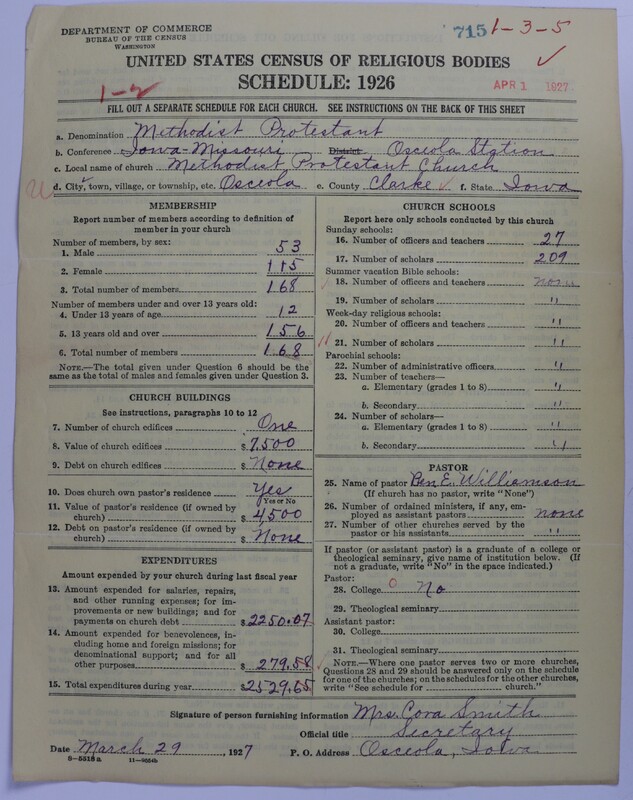 DEPARTMENT OF COMMERCE
BUREAU OF THE CENSUS
WASHINGTON
715 1-3-5
UNITED STATES CENSUS OF RELIGIOUS BODIES
SCHEDULE: 1926
APR 1 1927
1-2
FILL OUT A SEPARATE SCHEDULE FOR EACH CHURCH. SEE INSTRUCTIONS ON THE BACK OF THIS SHEET
a. Denomination Methodist Protestant
b. Conference Iowa-Missouri District Osceola Station
c. Local name of church Methodist Protestant Church
d. City, town, village, or township, etc. Osceola e. County Clarke f. State Iowa
MEMBERSHIP
Report number of members according to definition of
member in your church
Number of members, by sex:
1. Male 53
2. Female 115
3. Total number of members 168
Number of members under and over 13 years old:
4. Under 13 years of age 12
5. 13 years old and over 156
6. Total number of members 168
NOTE.—The total given under Question 6 should be the
same as the total of males and females given under Question 3.
CHURCH BUILDINGS
See instructions, paragraphs 10 to 12
7. Number of church edifices One
8. Value of church edifices $7,500
9. Debt on church edifices $None
10. Does church own pastor's residence Yes
Yes or No
11. Value of pastor's residence (if owned by
church) $4,500
12. Debt on pastor's residence (if owned by
church) $None
EXPENDITURES
Amount expended by your church during last fiscal year
13. Amount expended for salaries, repairs,
and other running expenses; for im-
provements or new buildings; and for
payments on church debt $2250.07
14. Amount expended for benevolences, in-
cluding home and foreign missions; for
denominational support; and for all
other purposes $279.58
15. Total expenditures during year $2529.65
CHURCH SCHOOLS
Report here only schools conducted by this church
Sunday schools:
16. Number of officers and teachers 27
17. Number of scholars 209
Summer vacation Bible schools:
18. Number of officers and teachers none
19. Number of scholars "
Week-day religious schools:
20. Number of officers and teachers "
21. Number of scholars "
Parochial schools:
22. Number of administrative officers "
23. Number of teachers—
a. Elementary (grades 1 to 8) "
b. Secondary "
24. Number of scholars—
a. Elementary (grades 1 to 8) "
b. Secondary "
PASTOR
25. Name of pastor Ben E. Williamson
(If church has no pastor, write "None")
26. Number of ordained ministers, if any, em-
ployed as assistant pastors none
27. Number of other churches served by the
pastor or his assistants "
If pastor (or assistant pastor) is a graduate of a college or
theological seminary, give name of institution below. (If
not a graduate, write "No" in the space indicated.)
Pastor:
28. College 0 No
29. Theological seminary
Assistant pastor:
30. College
31. Theological seminary
NOTE.—Where one pastor serves two or more churches,
Questions 28 and 29 should be answered only on the schedule
for one of the churches; on the schedules for the other churches,
write "See schedule for church."
Signature of person furnishing information Mrs. Cora Smith
Official title Secretary
Date March 29, 1927 P. O. Address Osceola, Iowa
8-5518a 11-9054b